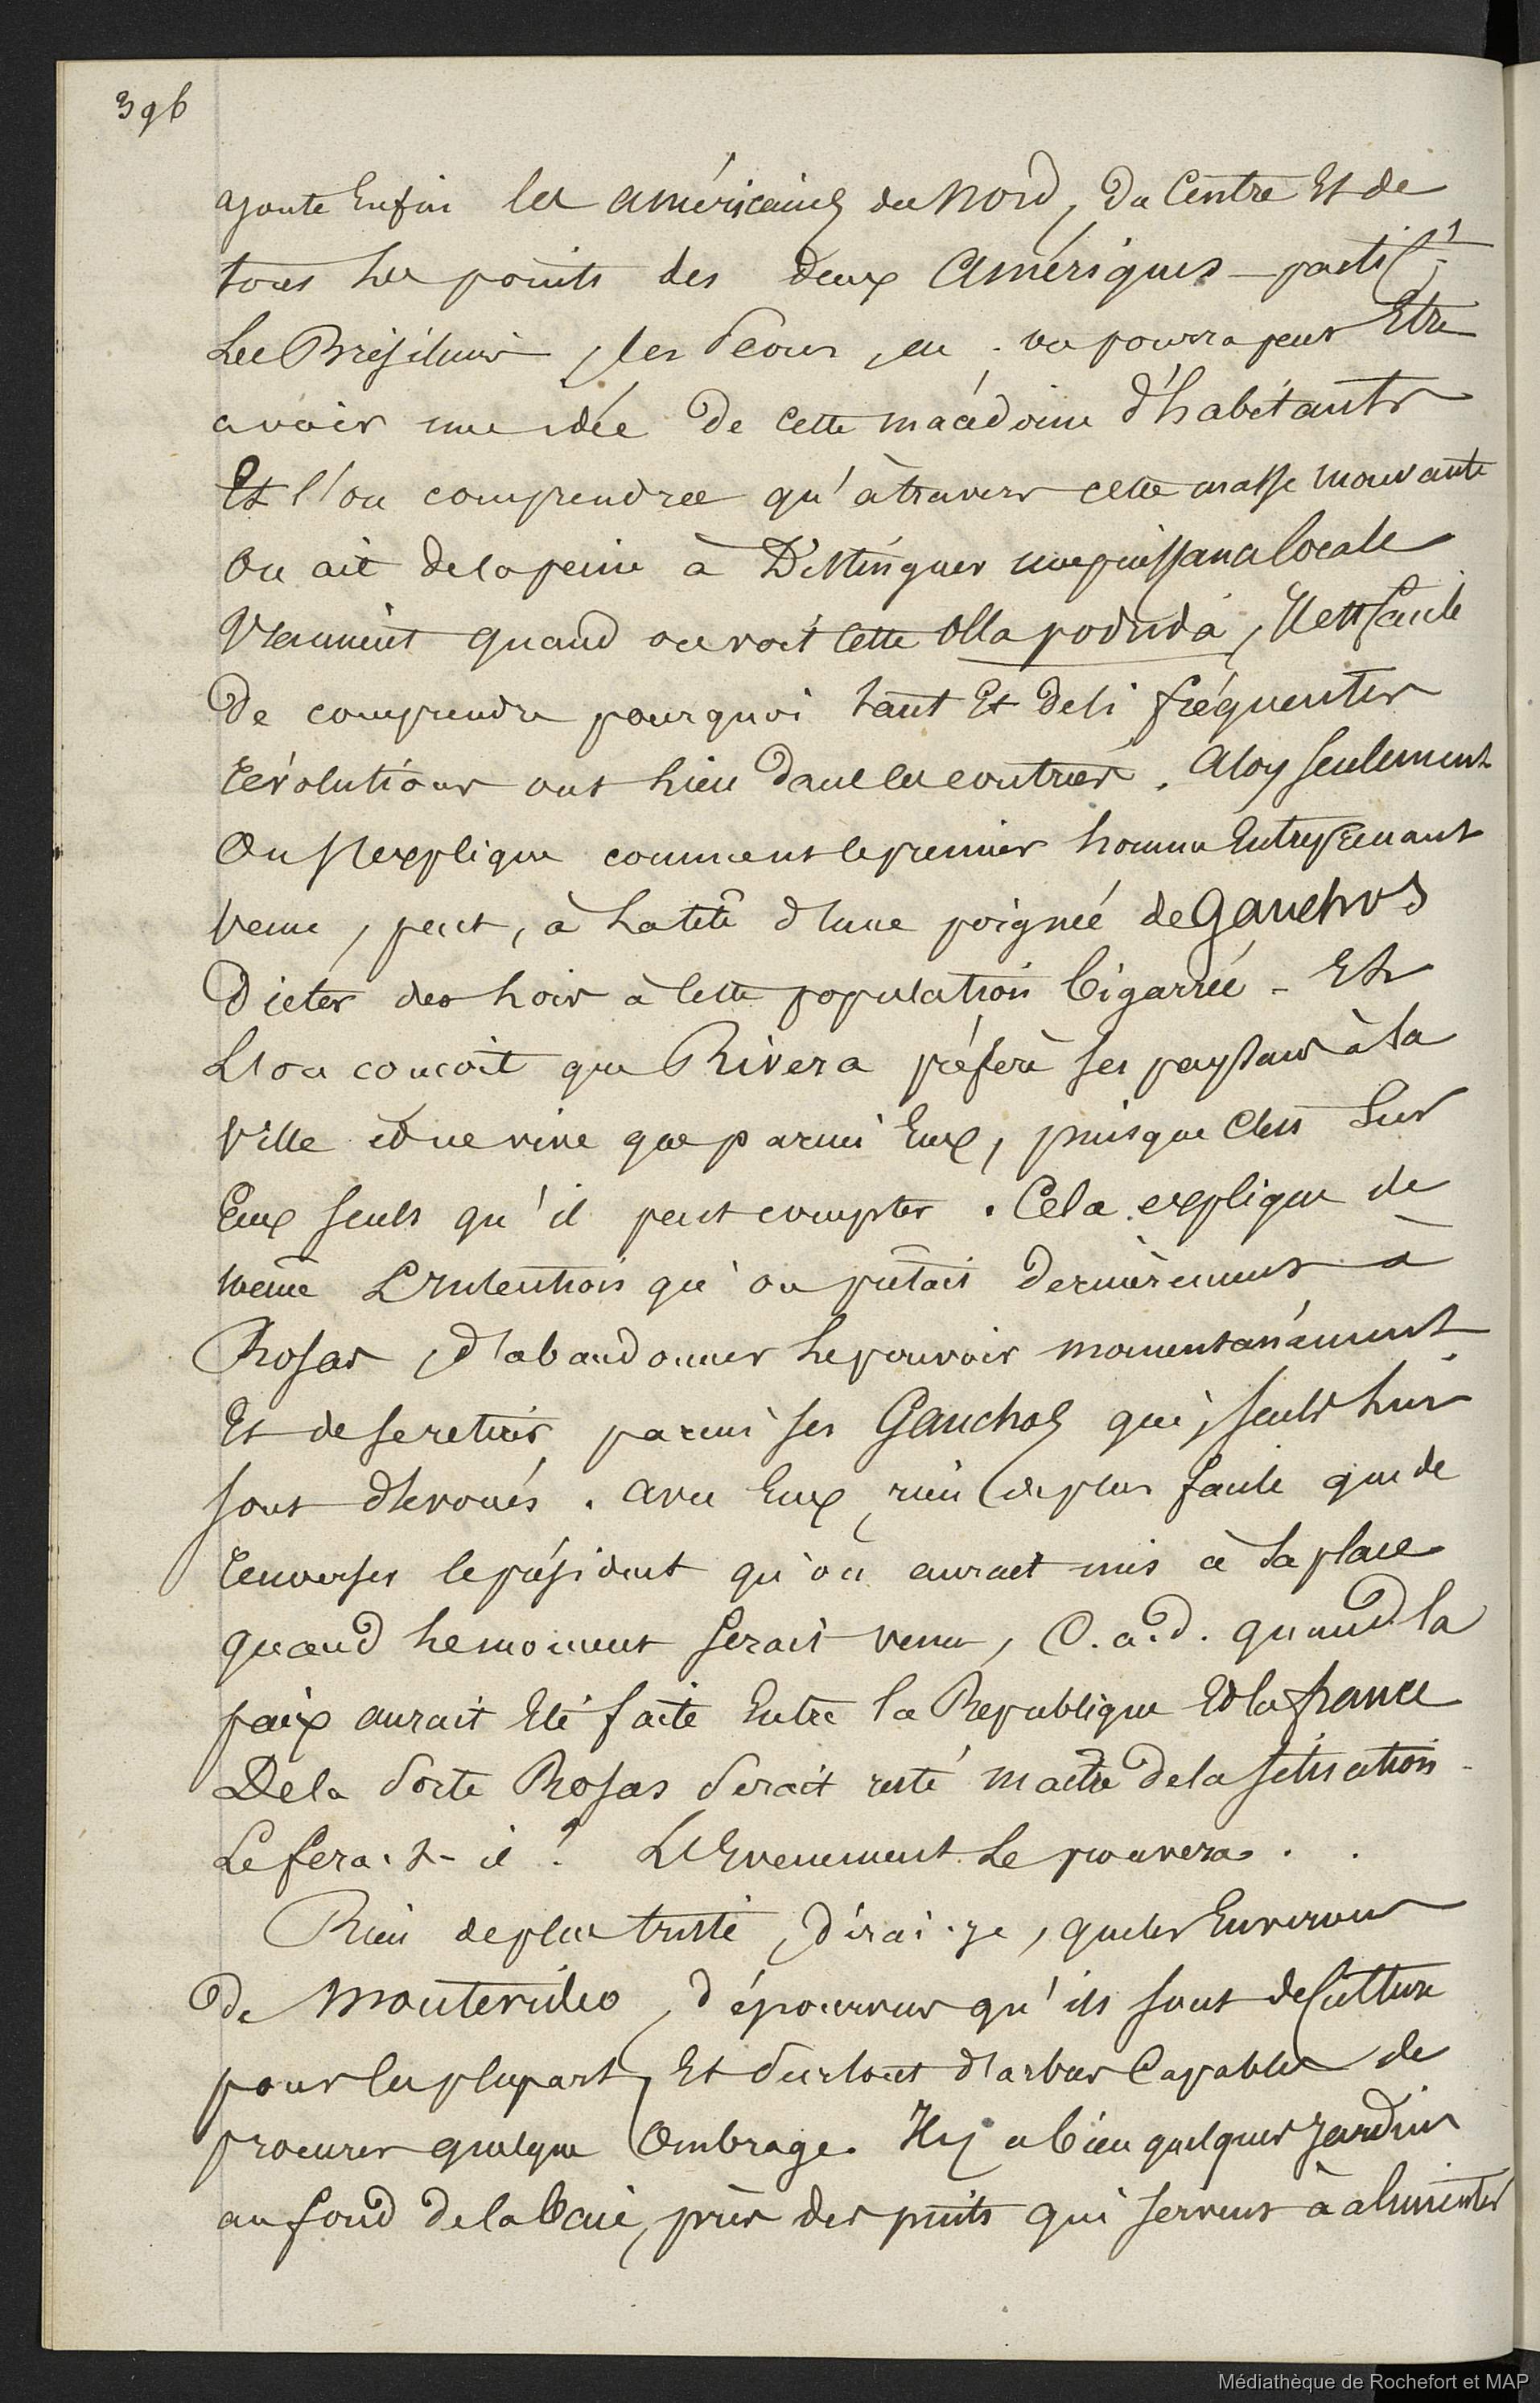 396
ajoute Enfin les américains du Nord, du Centre Et de
tous les points des deux Amériques - parti.t
Les Brésiliens, les on pourra peut Etre
avoir une idée de cette macédoine d'habitants
Et l'on comprendra qu'à travers cette masse mouvante
On ait de la peine à Distinguer une puissance locale
Vraiment quand on voit cette olla podrida, Il est facile
De comprendre pourquoi tant Et de si fréquentes
révolutions ont lieu dans les contrées. Alors seulement
On s'explique comment le premier homme Entreprenant
venu, peut, à la tête d'une poignée de Gauchos
Dicter des lois à cette population bigarrée - Et
L'on conçoit que Rivera préfère ses paysans à la
ville et ne vive que parmi Eux, puisque c'est sur
Eux seuls qu'il peut compter. Cela explique de
même L'intention qu'on prêtait dernièrement à
Rosas, d'abandonner le pouvoir momentanément
Et de se retirer parmi ses Gauchos qui, seuls lui
sont dévoués. avec Eux, rien de plus facile que de
renverser le président qu'on aurait mis à sa place
quand le moment serait venu, C.a.d. quand la
paix aurait Eté faite Entre la République Et la france
De la sorte Rosas serait resté maître de la situation -
Le fera-t-il ? L'Evenement le prouvera . .
Rien de plus triste, dirai-je, que les Environs
De Montevideo, dépourvus qu'ils sont de Culture
pour la plupart, Et surtout d'arbres Capables de
procurer quelque Ombrage. Il y a bien quelques jardins
au fond de la baie, près des puits qui servent à alimenter
Médiathèque de Rochefort et MAP